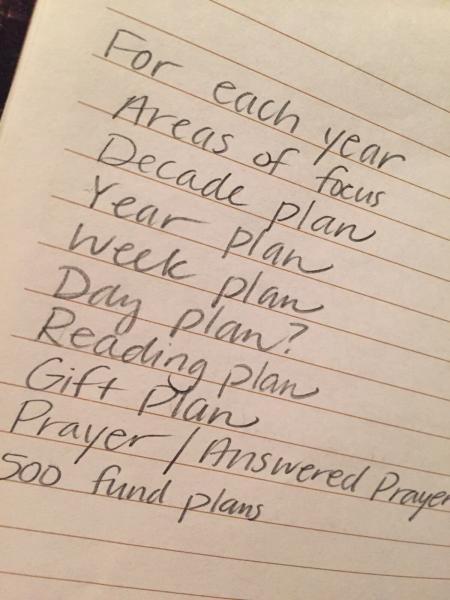 For each year
Areas of focus
Decade plan
Year plan
Week plan
Day plan?
Reading plan
Gift plan
Prayer / Answered Prayer
500 fund plans